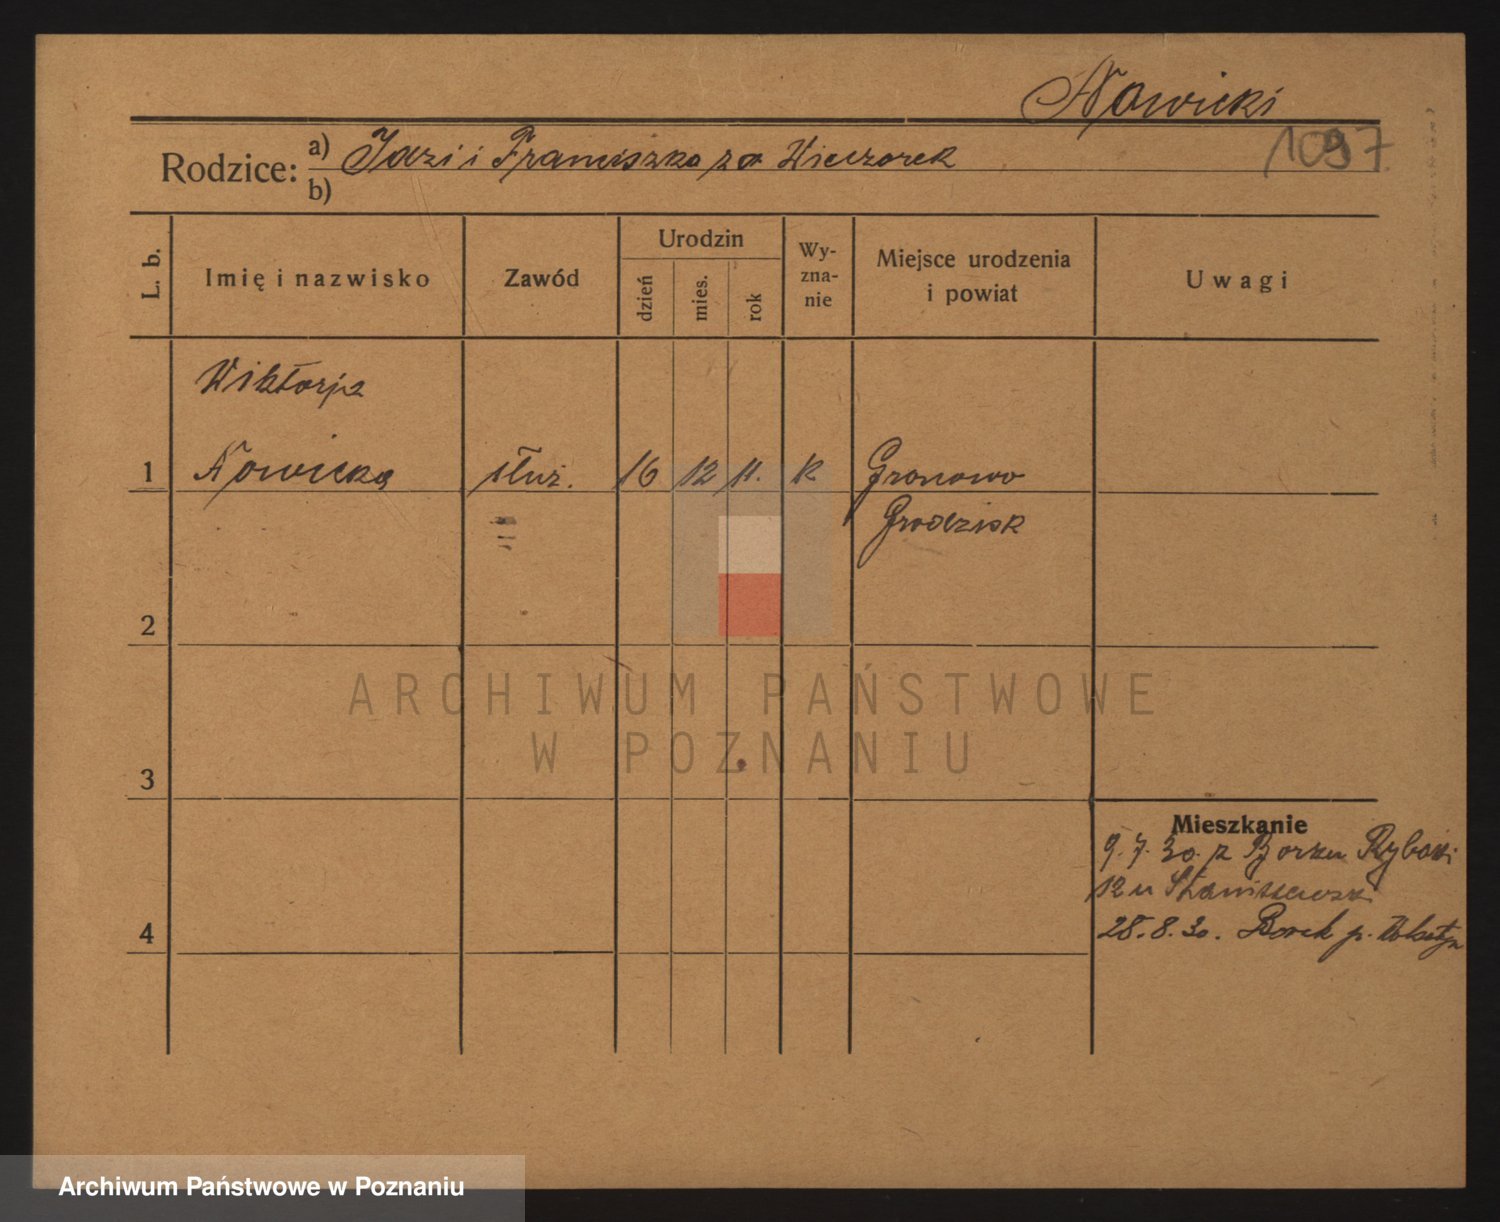 Nowicki
1097
Rodzice: a) Józef i Franciszka za Wieczorek
b)
L. b.
Imię i nazwisko
Zawód
Urodzin
dzień
mies.
rok
Wy-
zna-
nie
Miejsce urodzenia
i powiat
Uwagi
Wiktorja
1 Nowicka służ. 16 12 11. k Granowo
Grodzisk
2
ARCHIWUM PAŃSTWOWE
W POZNANIU
3
Mieszkanie
9.7.30. z Borku Rybaki
12 u
4
28.8.30. Borek p.
Archiwum Państwowe w Poznaniu